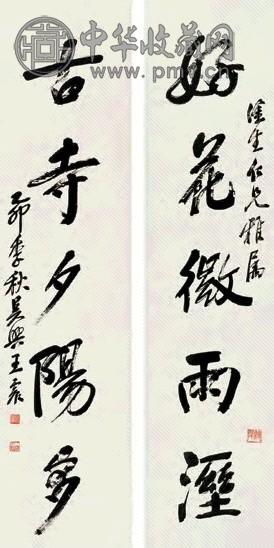 中华收藏网
生仁兄雅属
好花微雨溼
古寺夕陽多
乙卯季秋吴興王震